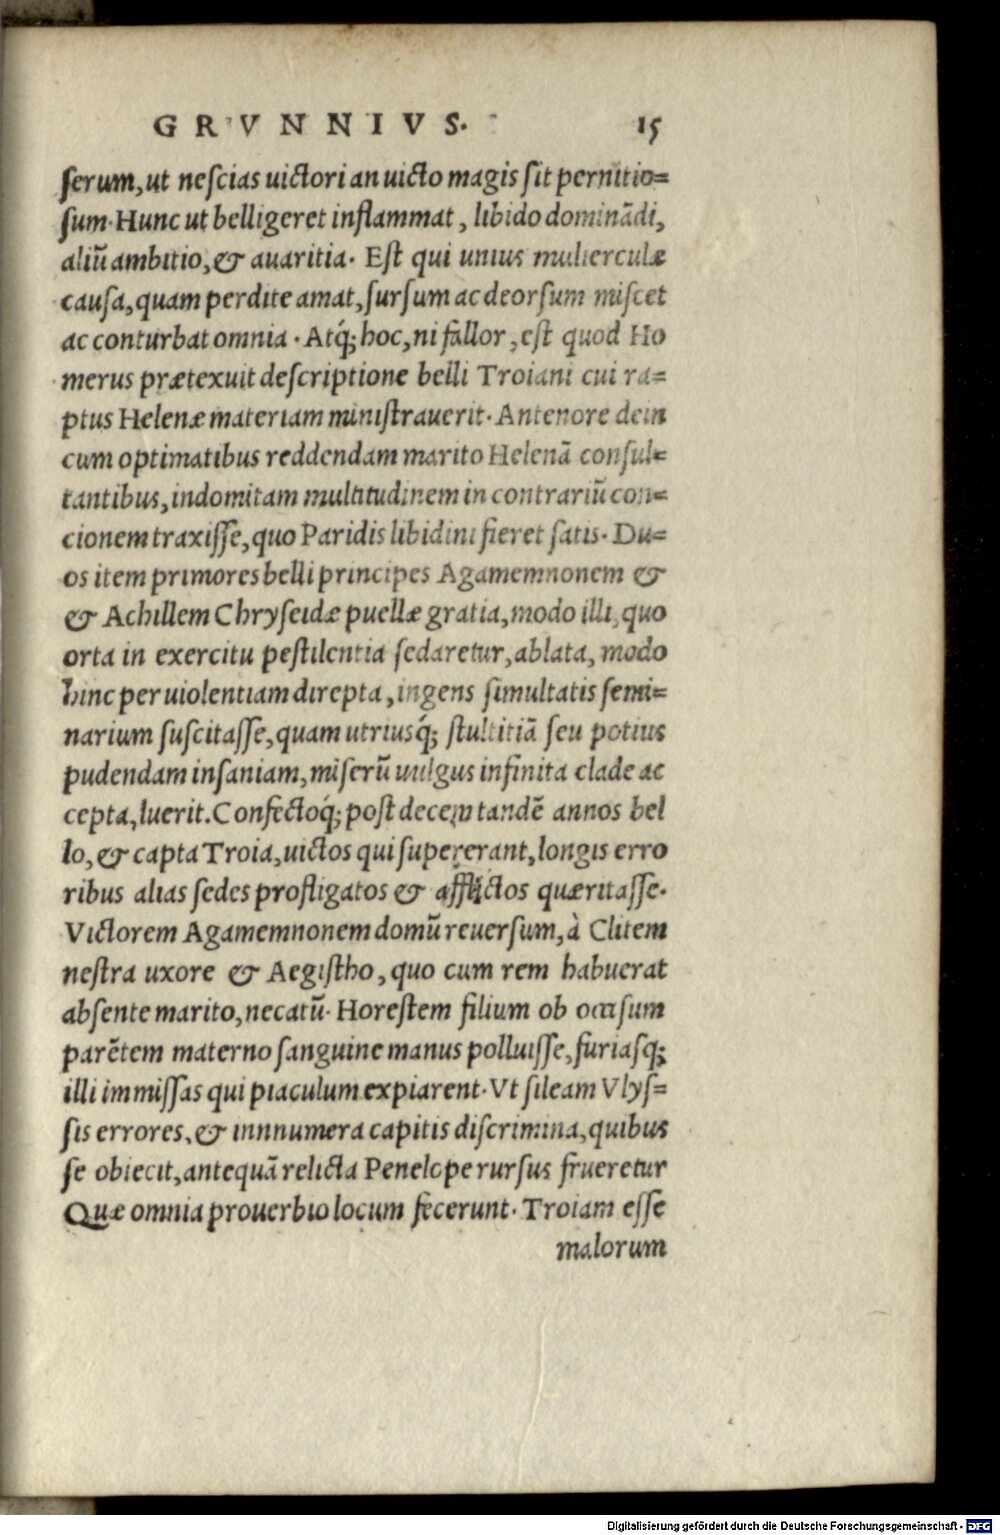 GRVNNIVS. 15
ſerum, ut neſcias uictori an uicto magis ſit pernitio=
ſum. Hunc ut belligeret inflammat, libido dominãdi,
aliũ ambitio, & auaritia. Eſt qui unius mulierculæ
cauſa, quam perdite amat, ſurſum ac deorſum miſcet
ac conturbat omnia. Atq́; hoc, ni fallor, eſt quod Ho
merus prætexuit deſcriptione belli Troiani cui ra=
ptus Helenæ materiam miniſtrauerit. Antenore dein
cum optimatibus reddendam marito Helenã conſul=
tantibus, indomitam multitudinem in contrariũ con=
cionem traxiſſe, quo Paridis libidini fieret ſatis. Du=
os item primores belli principes Agamemnonem &
& Achillem Chryſeidæ puellæ gratia, modo illi, quo
orta in exercitu peſtilentia ſedaretur, ablata, modo
hinc per uiolentiam direpta, ingens ſimultatis ſemi=
narium ſuſcitaſſe, quam utriusq́; ſtultitiã ſeu potius
pudendam inſaniam, miſerũ uulgus infinita clade ac
cepta, luerit. Confectoq́; poſt decem tandẽ annos bel
lo, & capta Troia, uictos qui ſupererant, longis erro
ribus alias ſedes profligatos & afflictos quæritaſſe.
Victorem Agamemnonem domũ reuerſum, à Clitem
neſtra uxore & Aegiſtho, quo cum rem habuerat
abſente marito, necatũ. Horeſtem filium ob occiſum
parẽtem materno ſanguine manus polluiſſe, furiasq́;
illi immiſſas qui piaculum expiarent. Vt ſileam Vlyſ=
ſis errores, & innnumera capitis diſcrimina, quibus
ſe obiecit, antequã relicta Penelope rurſus frueretur
Quæ omnia prouerbio locum fecerunt. Troiam eſſe
malorum
Digitalisierung gefördert durch die Deutsche Forschungsgemeinschaft - DFG